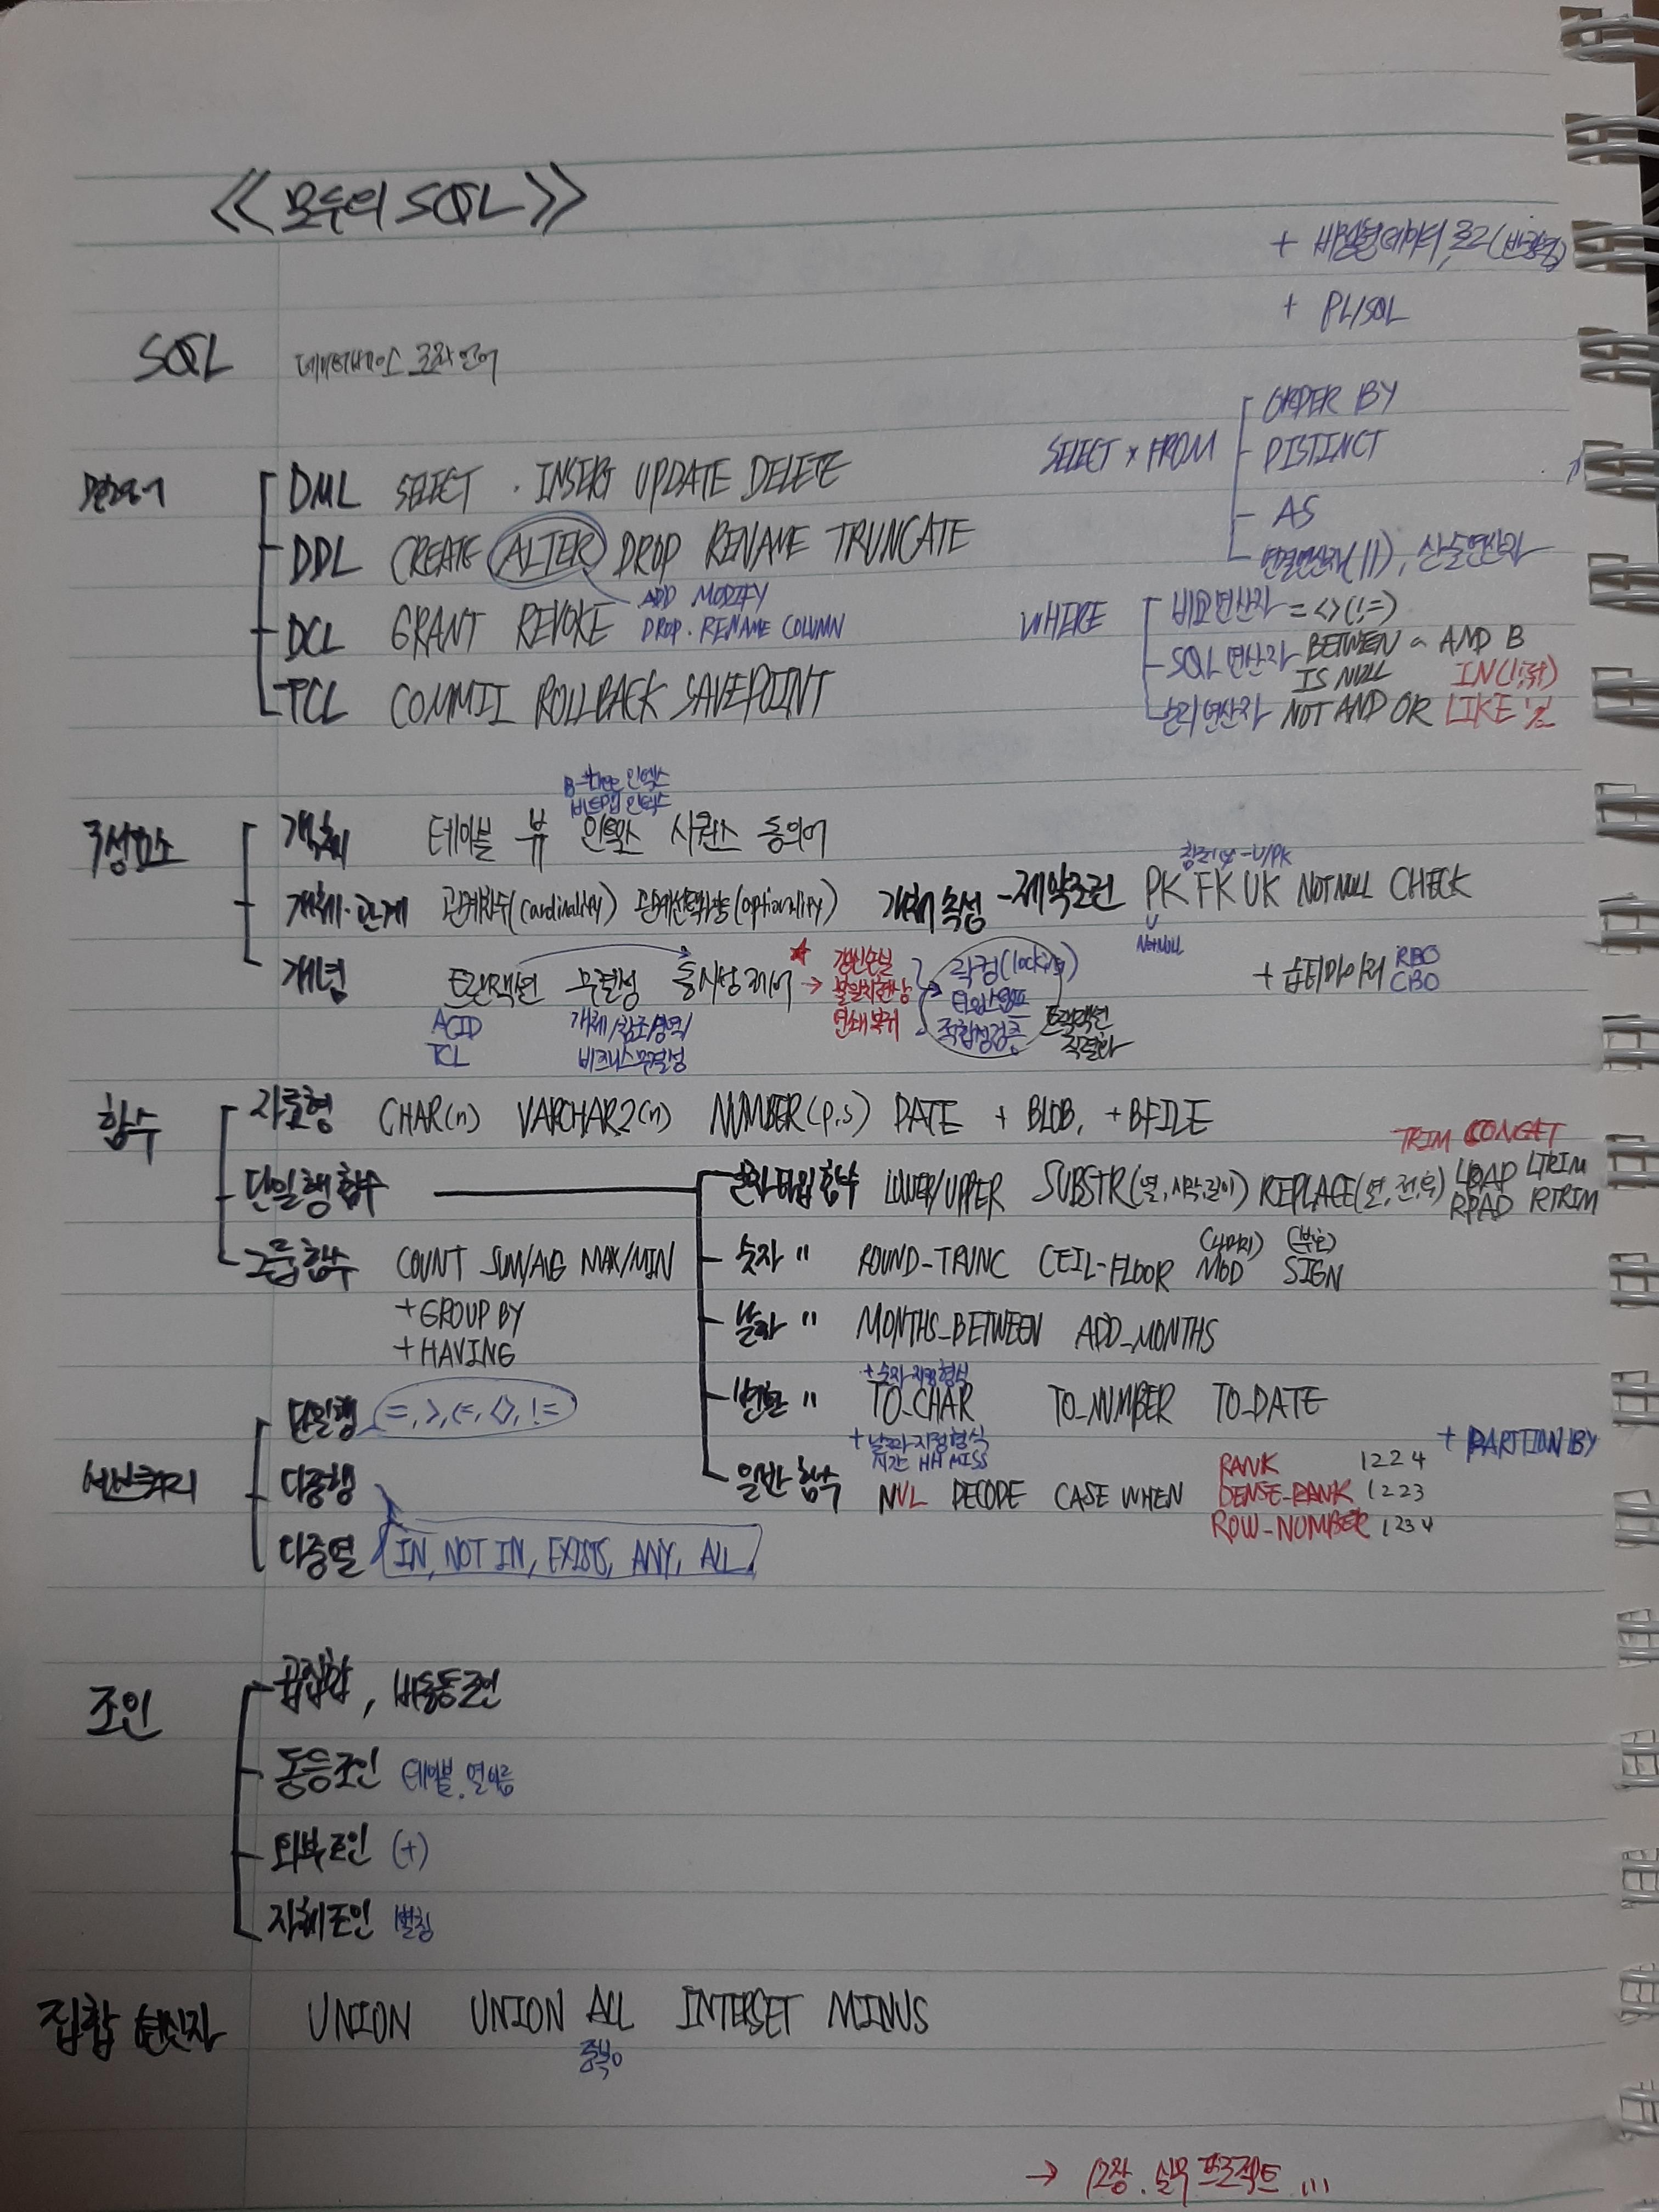 <<모두의 SQL>>
+ 비정형데이터, 로그(반정형)
+ PL/SQL
SQL 데이터베이스 조작 언어
SELECT * FROM
ORDER BY
DISTINCT
AS
연결연산자(||), 산술연산자
명령어
DML SELECT . INSERT UPDATE DELETE
DDL CREATE ALTER DROP RENAME TRUNCATE
ADD MODIFY
DROP . RENAME COLUMN
DCL GRANT REVOKE
TCL COMMIT ROLLBACK SAVEPOINT
WHERE
비교연산자 = <> (!=)
SQL 연산자 BETWEEN ~ AND B
IS NULL IN(1,
논리연산자 NOT AND OR LIKE '%
B-tree 인덱스
비트맵 인덱스
구성요소
객체 테이블 뷰 인덱스 시퀀스 동의어
개체·관계 관계차수(cardinality) 관계선택사양(optionality) 개체 속성 - 제약조건 PK FK UK NOT NULL CHECK
Not Null
개념 트랜잭션 무결성 동시성 제어 → 갱신손실
불일치현상
연쇄복귀
락킹(locking)
타임스탬프
적합성검증
트랜잭션
직렬화
ACID
TCL
개체/참조/영역/
비즈니스 무결성
+ 옵티마이저 RBO
CBO
함수
자료형 CHAR(n) VARCHAR2(n) NUMBER(p,s) DATE + BLOB, + BFILE
단일행 함수
TRIM CONCAT
문자타입 함수 LOWER/UPPER SUBSTR(열, 시작, 길이) REPLACE(열, 전, 후) LPAD LTRIM
RPAD RTRIM
그룹 함수 COUNT SUM/AVG MAX/MIN
+ GROUP BY
+ HAVING
숫자 " ROUND-TRUNC CEIL-FLOOR MOD SIGN
(나머지) (부호)
날짜 " MONTHS_BETWEEN ADD_MONTHS
+ 숫자 지정 형식
변환 " TO_CHAR TO_NUMBER TO_DATE
+ 날짜 지정형식
시간 HH MI SS
일반 함수 NVL DECODE CASE WHEN
RANK 1 2 2 4
DENSE-RANK 1 2 2 3
ROW-NUMBER 1 2 3 4
+ PARTITION BY
서브쿼리
단일행 =, >, <=, <>, !=
다중행
다중열 IN, NOT IN, EXISTS, ANY, ALL
조인
곱집합, 비동등조인
동등조인 테이블.열이름
외부조인 (+)
자체조인 별칭
집합 연산자 UNION UNION ALL INTERSET MINUS
중복o
→ 12장. 실무 프로젝트 ...